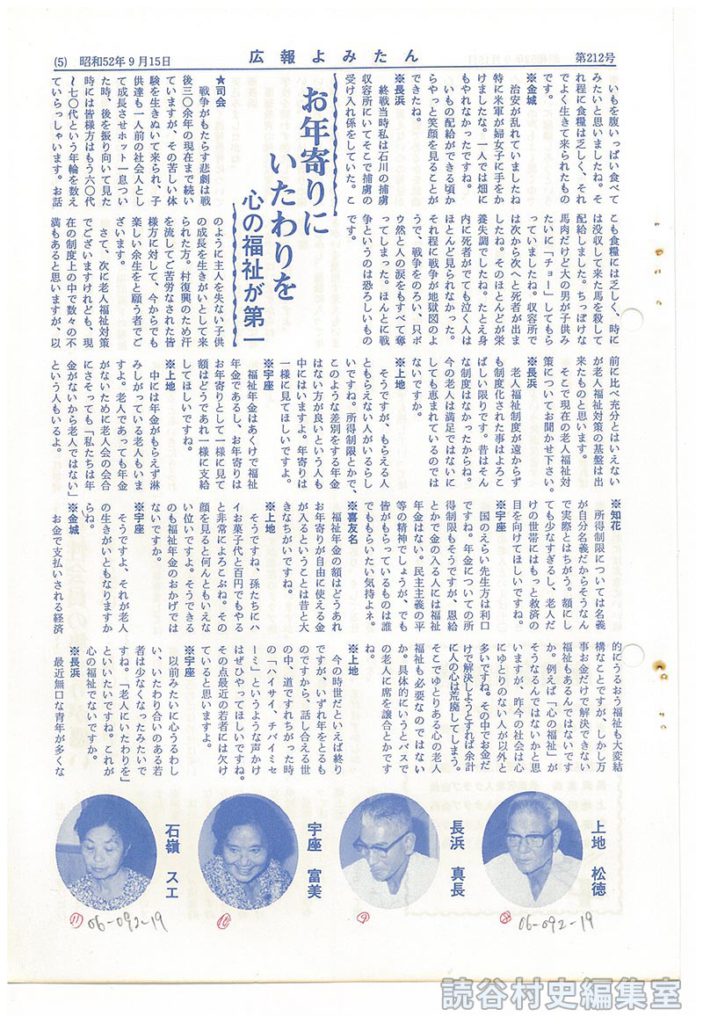 (5) 昭和52年9月15日
広報よみたん
第212号
いもを腹いっぱい食べて
みたいと思いましたね。そ
れ程に食糧は乏しく、それ
でよく生きて来られたもの
です。
※金城
治安が乱れていましたね
特に米軍が婦女子に手をか
けましたな。一人では畑に
もやれなかったですね。
いもの配給ができる頃か
らやっと笑顔を見ることが
できたね。
※長浜
終戦当時私は石川の捕虜
収容所にいてそこで捕虜の
受け入れ係をしていた。こ
こも食糧には乏しく、時に
は没収して来た馬を殺して
配給しました。ちっぽけな
馬肉だけど大の男が子供み
たいに「チョー」してもら
っていましたね。収容所で
は次から次へと死者が出ま
したね。そのほとんどが栄
養失調でしたね。たとえ身
内に死者がでても泣く人は
ほとんど見られなかった。
それ程に戦争が地獄図のよ
うで、戦争をのろい、只ボ
ウ然と人の涙をもすべて奪
ってしまった。ほんとに戦
争というのは恐ろしいもの
です。
お年寄りに
いたわりを
心の福祉が第一
★司会
戦争がもたらす悲劇は戦
後三〇余年の現在まで続い
ていますが、その苦しい体
験を生きぬいて来られ、子
供達も一人前の社会人とし
て成長させホット一息つい
た時、後を振り向いて見た
時には皆様方はもう六〇代
〜七〇代という年輪を数え
ていらっしゃいます。お話
のように主人を失ない子供
の成長を生きがいとして来
られた方。村復興のため汗
を流してど苦労なされた皆
様方に対して、今からでも
楽しい余生をと願う者でご
ざいます。
さて、次に老人福祉対策
でございますけれども、現
在の制度上の中で数々の不
満もあると思いますが、以
前に比べ充分とはいえない
が老人福祉対策の基盤は出
来たものと思います。
そこで現在の老人福祉対
策についてお聞かせ下さい。
※長浜
老人福祉制度が遠からず
も制度化された事はよろこ
ばしい限りです。昔はそん
な制度はなかったからね。
今の老人は満足ではないに
しても恵まれているのでは
ないですか。
※上地
そうですが、もらえる人
ともらえない人がいるらし
いですね。所得制限とかで、
このような差別をする年金
はない方が良いという人も
中にはいますよ。年寄りは
一様に見てほしいですよ。
※宇座
福祉年金はあくけで福祉
年金であるし、お年寄りは
お年寄りとして一様に見て
額はどうであれ一様に支給
してほしいですね。
※上地
中には年金がもらえず淋
みしがっている老人もいま
すよ。老人であっても年金
がないために老人会の会合
にさそっても「私たちは年
金がないから老人ではない」
という人もいるよ。
※知花
所得制限については名義
が自分名義だからそうなん
で実際とはちがう。額にし
ても少なすぎるし、老人だ
けの世帯にはもっと救済の
目を向けてほしいですね。
※宇座
国のえらい先生方は利口
ですね。年金についての所
得制限もそうですが、恩給
とかで金の入る人には福祉
年金はない。民主主義の平
等の精神でしょうが、でも
皆がもらっているものは誰
でももらいたい気持よネ。
※喜友名
福祉年金の額はどうあれ
お年寄りが自由に使える金
が入るということは昔と大
きなちがいですね。
※上地
そうですね、孫たちにハ
イお菓子代と百円でもやる
と非常によろこぶね。その
顔を見ると何んともいえな
い位いですよ。そうできる
のも福祉年金のおかげでは
ないですか。
※宇座
そうですよ、それが老人
の生きがいともなりますか
らね。
※金城
お金で支払いされる経済
的にうるおう福祉も大変結
構なことですが、しかし万
事お金だけで解決できない
福祉もあるんではないです
か。例えば「心の福祉」が
そうなるんではないかと思
いますが、昨今の社会は心
にゆとりのない人が以外と
多いですね。その中でお金だ
けで解決しようとすれば余計
に人の心は荒廃してしまう。
そこでゆとりある心の老人
福祉も必要なのではない
か。具体的にいうとバスで
の老人に席を譲合とかです
ね。
※上地
今の時世だといえば終り
ですが、いずれ年をとるも
のですから、話し合える世
の中、道ですれちがった時
の「ハイサイ、チバイミセ
ーミ」というような声かけ
はぜひやってほしいですね。
その点最近の若者には欠け
ていると思いますよ。
※宇座
以前みたいに心うるわし
い、いたわり合いのある若
者は少なくなったみたいで
すね。「老人にいたわりを」
といいたいですね。これが
心の福祉でないですか。
※長浜
最近無口な青年が多くな
上地 松徳
長浜 真長
宇座 富美
石嶺 スエ
⑪ 06-092-19
⑩
⑨
⑧ 06-092-19
読谷村史編集室